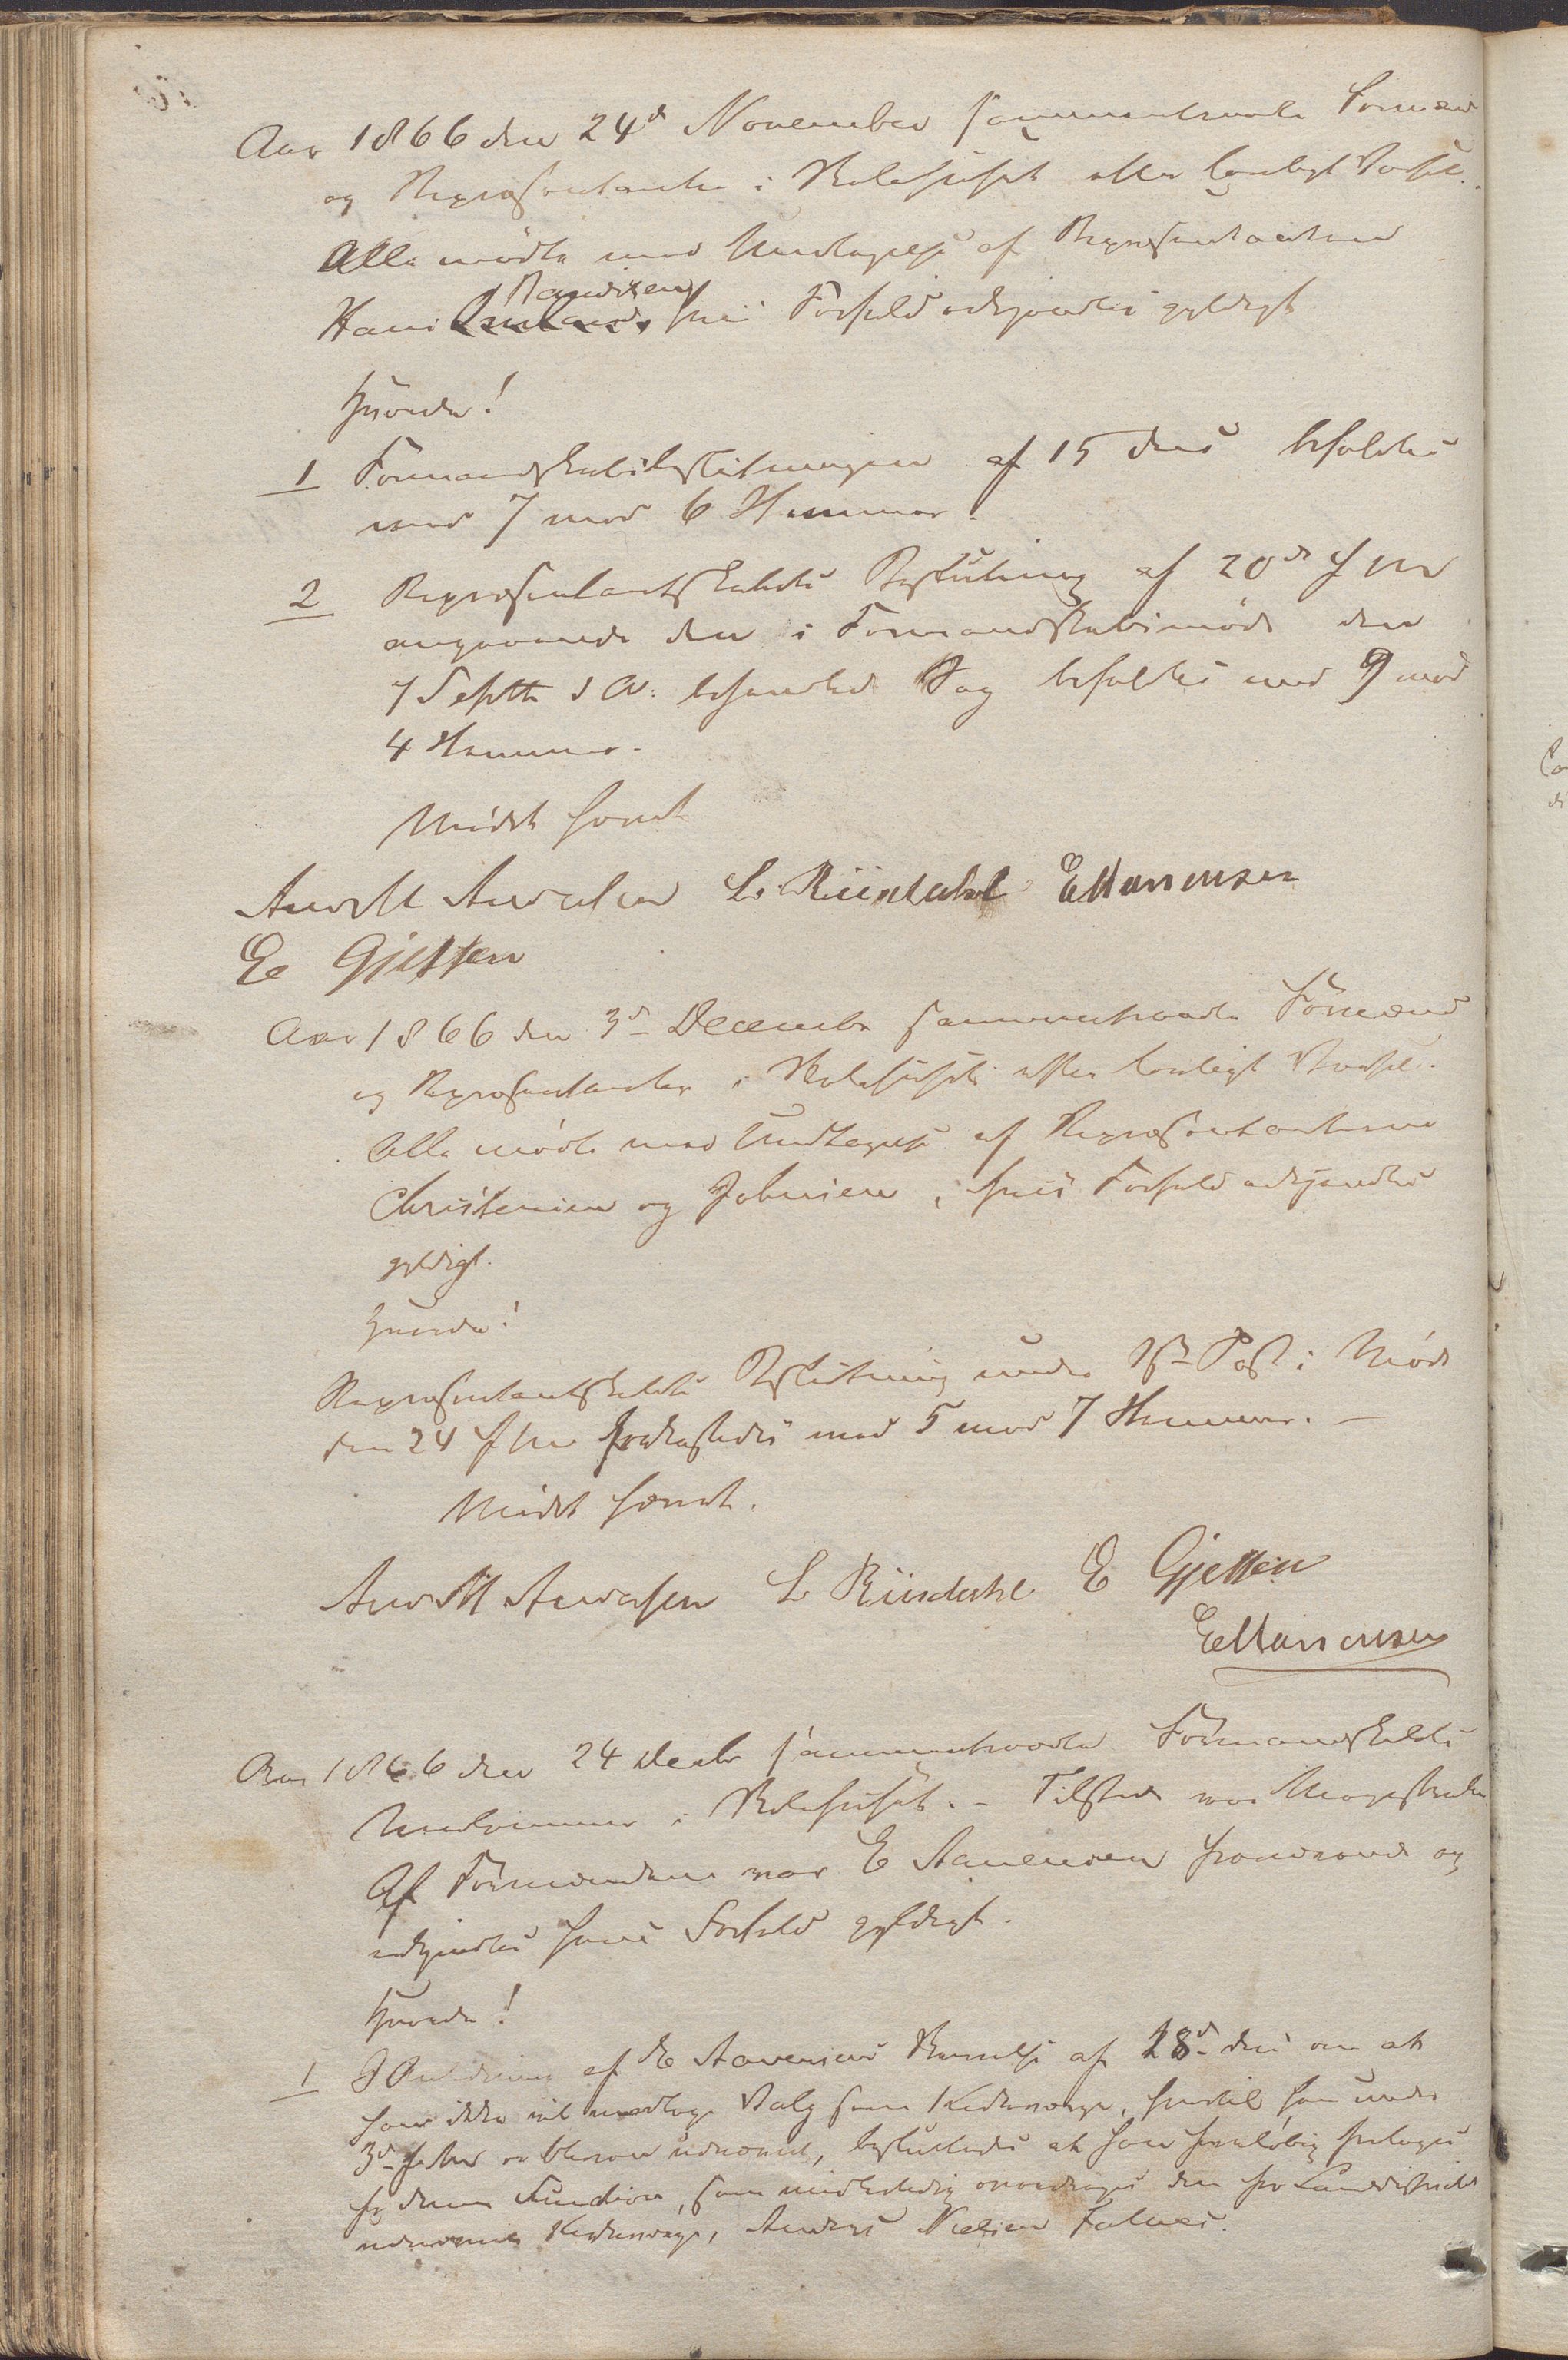 Aar 1866 den 24de November sammentraadte Formænd
og Repræsentanter i Skolehuset efter lovligt Varsel.
Alle mødte med Undtagelse af Repræsentanten
Hans Ravdixen hvis Forfald ansaaes gyldigt
Hvorda!
1 Formandskabsbeslutningen af 15 dens befoldtes
med 7 mod 6 Stemmer.
2 Repræsentantskabets Beslutning af 20de f M
angaaende den i Formandskabsmøde den
7 Septb d A: behandlede Sag befoldtes med 9 mod
4 Stemmer.
Mødet hævet
And M Andersen L. Riisdahl E Mariensen
E. Gjetsen
Aar 1866 den 3de December sammentraadte Formænd
og Repræsentanter i Skolehuset efter lovligt Varsel.
Alle mødte med Undtagelse af Repræsentanterne
Christensen og Johnsen, hvis Forfald erkjendtes
gyldigt.
Hvorda!
Repræsentantskabets Beslutning under 1ste Post i Møde
den 24 f M forkastedes med 5 mod 7 Stemmer. —
Mødet hævet.
And M Andersen L Riisdahl E Gjetsen
E Mariensen
Aar 1866 den 24 Decbr sammentraadte Formandskabets
Medlemmer i Skolehuset. - Tilstede var Magistraten
Af Formændene var E Aanensen fraværende og
erkjendtes hans Forfald gyldigt.
Hvorda!
1 I Anledning af E Aanensens Skrivelse af 18de dens om at
han ikke vil modtage Valg som Kirkeværge, hvortil han under
3de var bleven udnævnt, besluttedes at han foreløbig fritages
for denne Function, som midlertidig overdrages den for Landdistrictet
udnævnte Kirkeværge, Anders Nielsen Falnes.